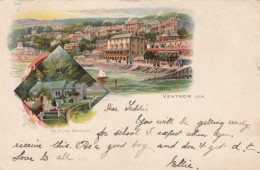 VENTNOR I.O.W.
Dear
You will be getting ready
for school I expect when you
receive this. Be a good boy and don't get d.t.
Love to all
Nellie.